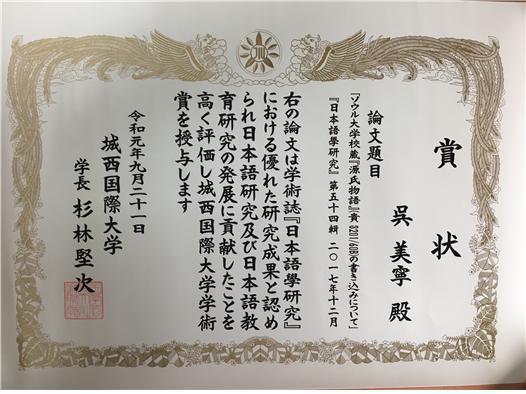 賞状
呉美寧殿
論文題目
「ソウル大学校蔵『源氏物語』貴
の書き込みについて」
『日本語學研究』第五十四輯 二〇一七年十二月
右の論文は学術誌『日本語學研究』
における優れた研究成果と認め
られ日本語研究及び日本語教
育研究の発展に貢献したことを
高く評価し城西国際大学学術
賞を授与します
令和元年九月二十一日
城西国際大学
学長 杉林堅次